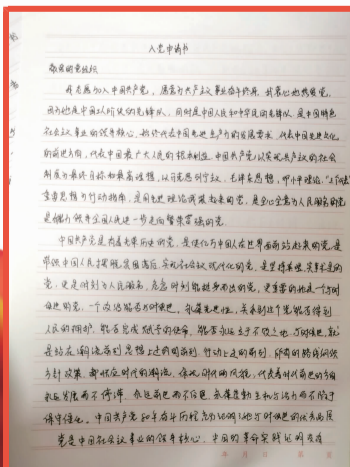 入党申请书
敬爱的党组织
我志愿加入中国共产党，愿意为共产主义事业奋斗终身。我衷心地热爱党，
因为她是中国工人阶级的先锋队，同时是中国人民和中华民族的先锋队，是中国特色
社会主义事业的领导核心，始终代表中国先进生产力的发展要求，代表中国先进文化
的前进方向，代表中国最广大人民的根本利益。中国共产党以实现共产主义的社会
制度为最终目标和最高理想，以马克思列宁主义、毛泽东思想、邓小平理论、"三个代表"
重要思想为行动指南，是用先进理论武装起来的党，是全心全意为人民服务的党
是能力领导全国人民进一步走向繁荣富强的党。
中国共产党是有着光荣历史的党，是使亿万中国人在世界面前站起来的党，是
带领中国人民摆脱贫困落后，实现社会主义现代化的党，是坚持真理，实事求是的
党，更是时刻为人民服务，危急时刻能挺身而出的党，更重要的她是一个与时
俱进的党。一个政治能否与时俱进，永葆先进性，关系到这个党能否得到
人民的拥护，能否完成赋予的使命，能否永远立于不败之地。与时俱进，就
是站在潮流前列思想上走的前列，行动上走的前列，所有的路线纲领
方针政策，都顺应时代的潮流，体现时代的风貌，代表着时代前进的方向
永远发展而不停滞，永远前进而不倒退，永葆蓬勃生机与活力而不陷于
保守僵化。中国共产党80年奋斗历程
党是中国社会主义事业的领导核心。中国的革命实践证明没有
年 月 日 第 页